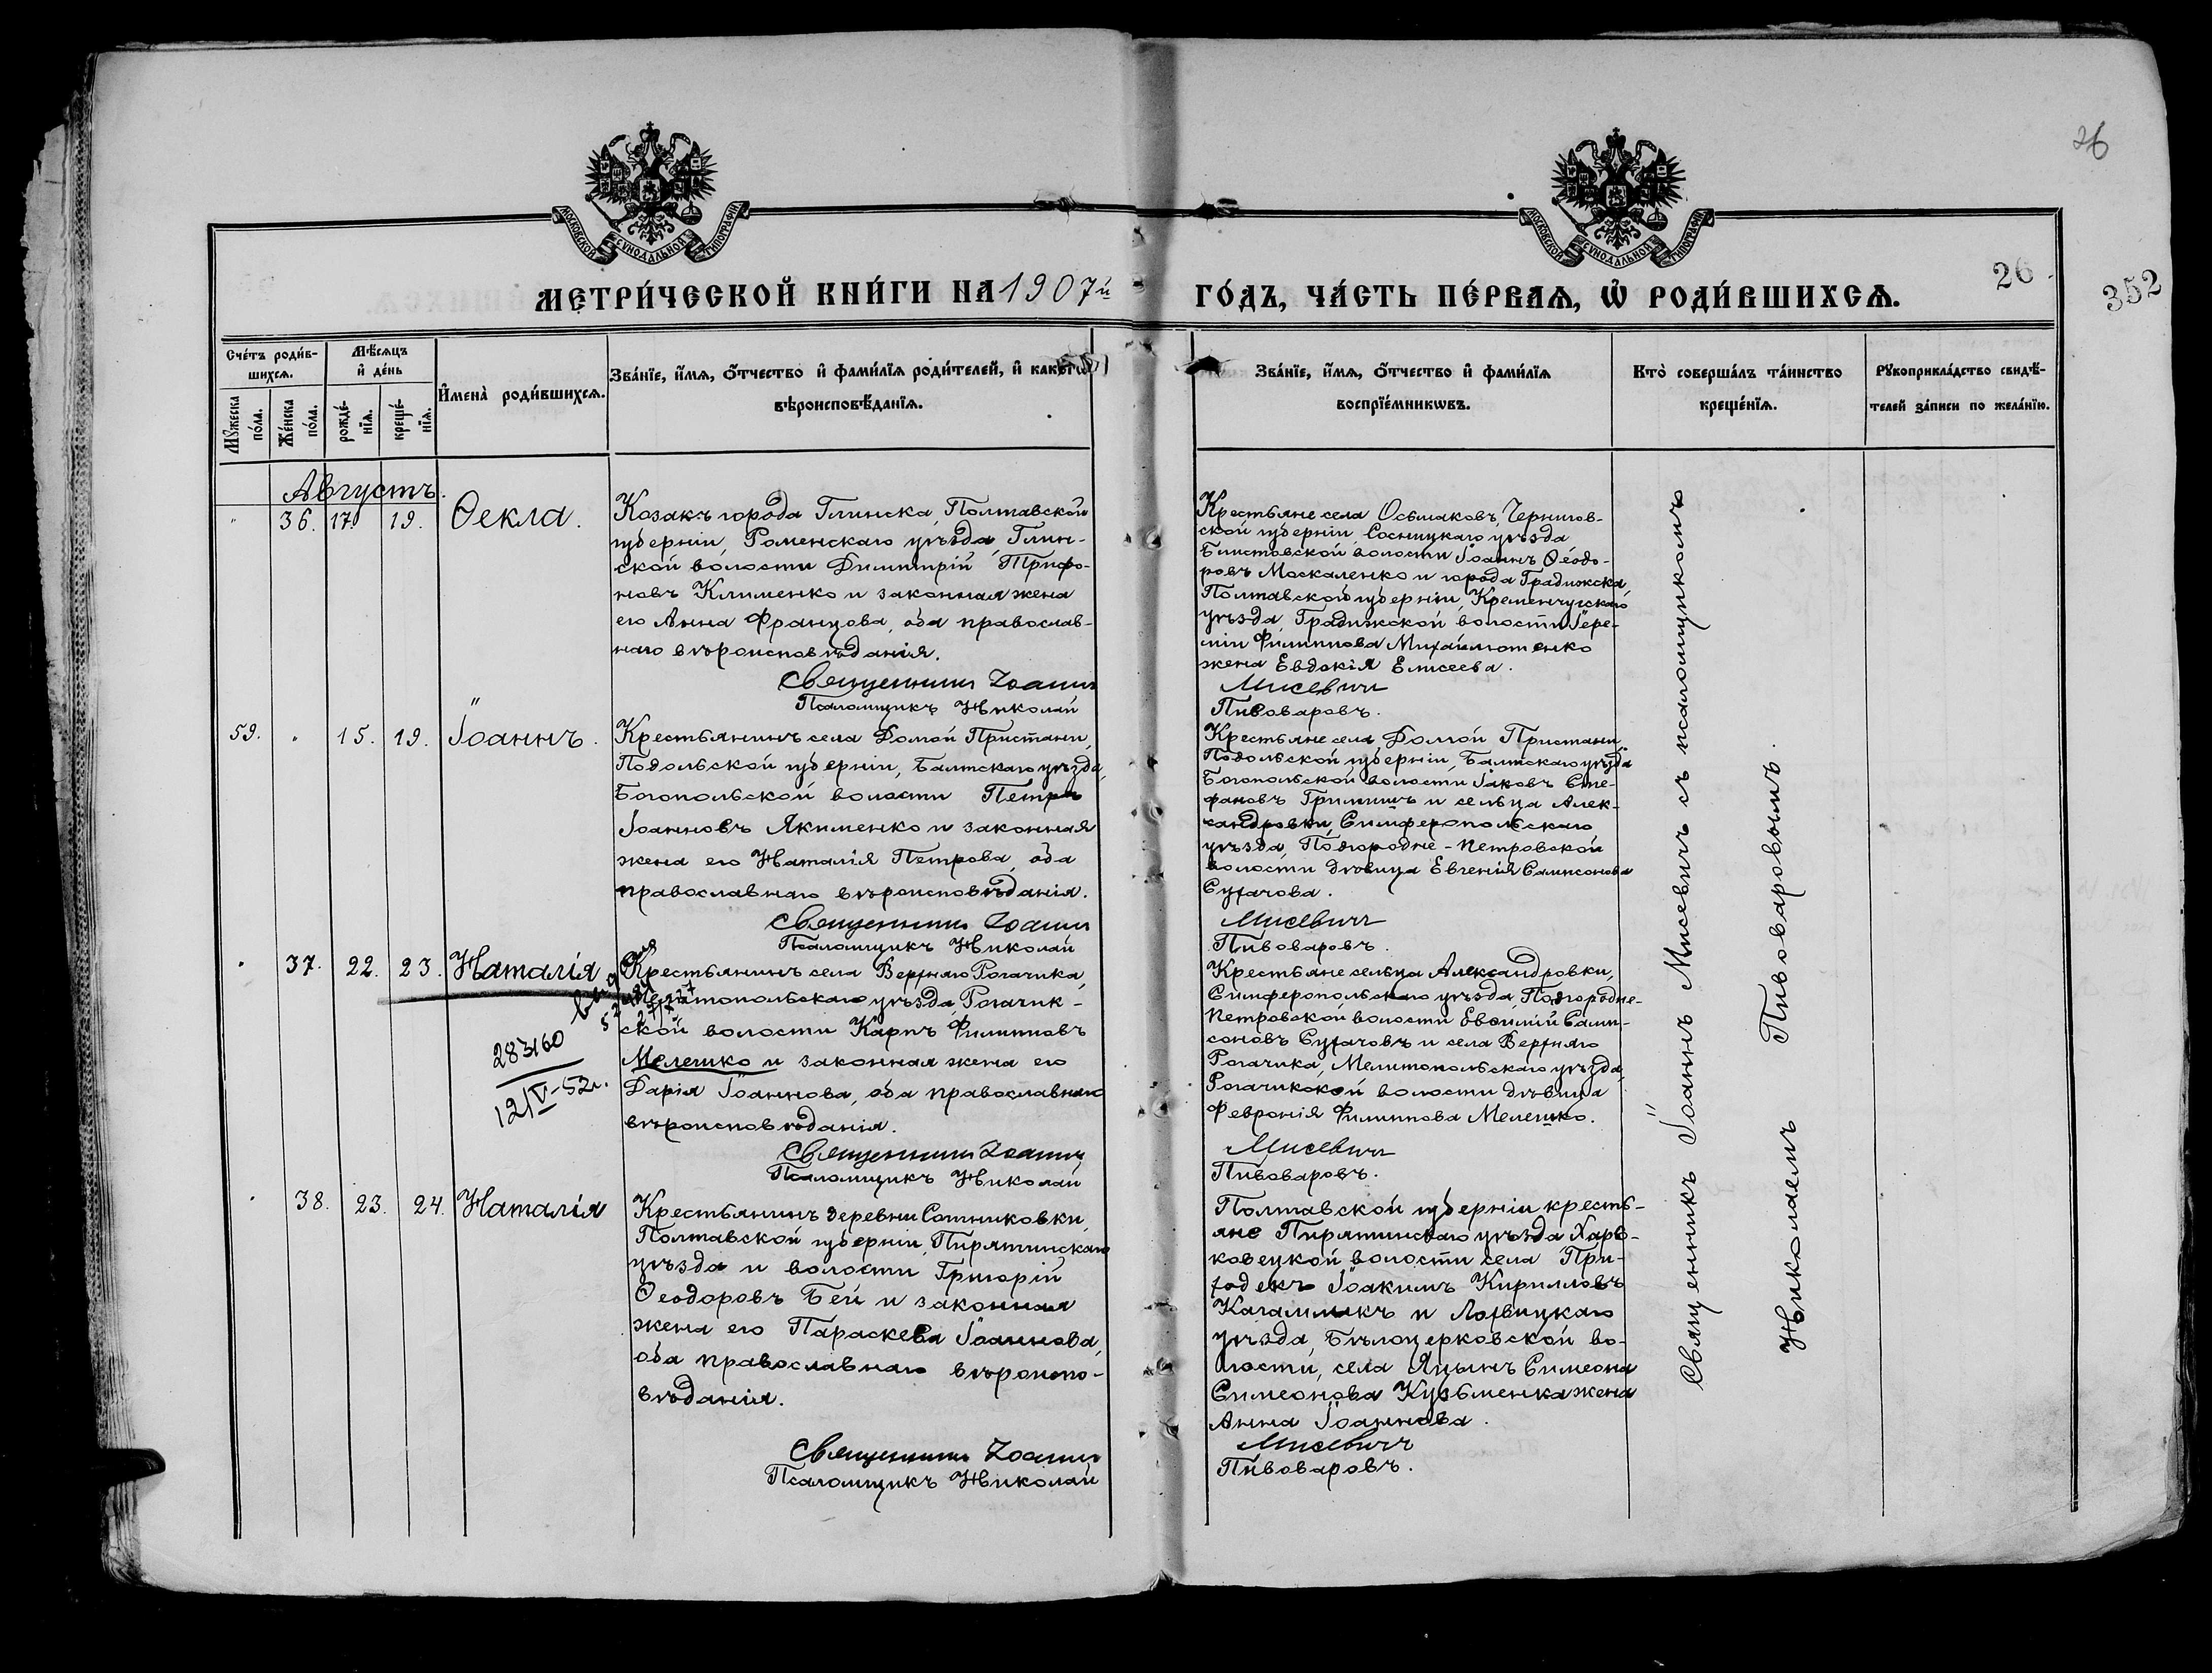 26
МОСКОВСКОЙ СУНОДАЛЬНОЙ ТИПОГРАФІИ
МОСКОВСКОЙ СУНОДАЛЬНОЙ ТИПОГРАФІИ
26
352
МЕТРИ́ЧЕСКОЙ КНИ́ГИ НА 1907й
ГО́ДЪ, ЧА́СТЬ ПЕ́РВАЯ, Ѿ РОДИ́ВШИХСѦ.
Сче́тъ роди́в-
шихсѧ.
Мѣ́сѧцъ
и҆ де́нь
Мꙋ́жеска по́ла.
Же́нска по́ла.
рожде́-
нїѧ.
креще́-
нїѧ.
И҆мена̀ роди́вшихсѧ.
Зва́нїе, и҆́мѧ, ѻ҆́тчество и҆ фами́лїѧ роди́телей, и҆ како́гѡ
вѣроисповѣ́данїѧ.
Зва́нїе, и҆́мѧ, ѻ҆́тчество и҆ фами́лїѧ
воспрїе́мникѡвъ.
Кто̀ соверша́лъ та́инство
креще́нїѧ.
Рꙋкоприкла́дство свидѣ́-
телей за́писи по жела́нїю.
Августъ.
" 36. 17. 19. Ѳекла.
Козакъ города Глинска, Полтавской
губерніи, Роменскаго уѣзда, Глин-
ской волости Димитрій Трифо-
новъ Клименко и законная жена
его Анна Францова, оба православ-
наго вѣроисповѣданія.
Священникъ Іоаннъ
Псаломщикъ Николай
Крестьяне села Осьмаковъ, Чернигов-
ской губерніи, Сосницкаго уѣзда
Бистовской волости Іоаннъ Ѳеодо-
ровъ Москаленко и города Градижска,
Полтавской губерніи, Кременчугскаго
уѣзда, Градижской волости Іере-
міи Филиппова Михайлютенко
жена Евдокія Елисеева.
Мисевичъ
Пивоваровъ.
59. " 15. 19. Іоаннъ.
Крестьянинъ села Долгой Пристани,
Подольской губерніи, Балтскаго уѣзда,
Богопольской волости Петръ
Іоанновъ Якименко и законная
жена его Наталія Петрова, оба
православнаго вѣроисповѣданія.
Священникъ Іоаннъ
Псаломщикъ Николай
Крестьяне села Долгой Пристани,
Подольской губерніи, Балтскаго уѣзда
Богопольской волости Іаковъ Сте-
фановъ и сельца Алек-
сандровки, Симферопольскаго
уѣзда, Подгородне-Петровской
волости дѣвица Евгенія Сампсонова
Сухачова.
Мисевичъ
Пивоваровъ.
" 37. 22. 23. Наталія
283160
12/V-52г.
Крестьянинъ села Верхняго Рогачика,
Мелитопольскаго уѣзда, Рогачик-
ской волости Карпъ Филипповъ
Мелешко и законная жена его
Дарія Іоаннова, оба православнаго
вѣроисповѣданія.
Священникъ Іоаннъ
Псаломщикъ Николай
Крестьяне сельца Александровки,
Симферопольскаго уѣзда, Подгородне-
Петровской волости Евѳимій Самп-
соновъ Сухачовъ и села Верхняго
Рогачика, Мелитопольскаго уѣзда,
Рогачикской волости дѣвица
Февронія Филиппова Мелешко.
Мисевичъ
Пивоваровъ.
" 38. 23. 24. Наталія
Крестьянинъ деревни Сотниковки,
Полтавской губерніи, Пирятинскаго
уѣзда и волости Григорій
Ѳеодоровъ Бей и законная
жена его Параскева Іоаннова,
оба православнаго вѣроиспо-
вѣданія.
Священникъ Іоаннъ
Псаломщикъ Николай
Полтавской губерніи кресть-
яне Пирятинскаго уѣзда Харь-
ковецкой волости села При-
ходекъ Іоакимъ Кирилловъ
и Лохвицкаго
уѣзда, Бѣлоцерковской во-
лости, села Яцынъ Симеона
Симеонова Кузьменка жена
Анна Іоаннова.
Мисевичъ
Пивоваровъ.
Священникъ Іоаннъ Мисевичъ съ псаломщикомъ
Николаемъ Пивоваровымъ.